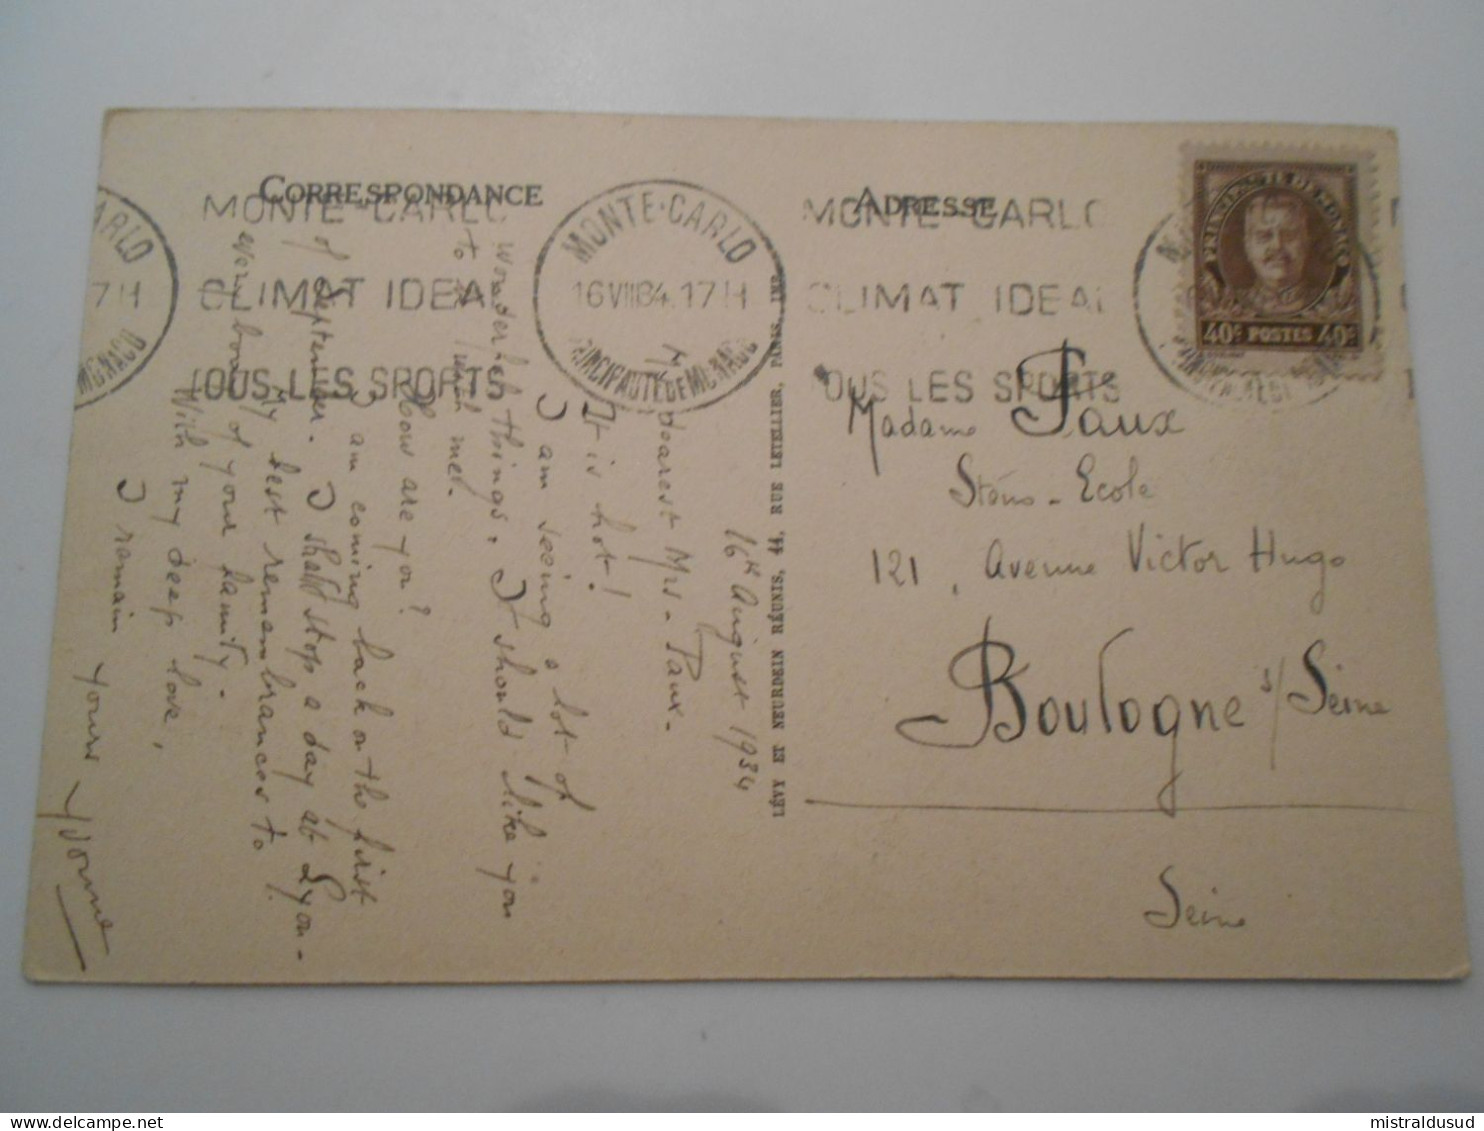 CORRESPONDANCE
ADRESSE
MONTE-CARLO
CLIMAT IDEAL
TOUS LES SPORTS
MONTE-CARLO
16 VIII 34. 17 H
PRINCIPAUTÉ DE MONACO
MONTE-CARLO
CLIMAT IDEAL
TOUS LES SPORTS
ARLO
7 H
MONACO
PRINCIPAUTÉ DE MONACO
40c POSTES 40c
16th August 1934
My dearest Mrs. Paux.
It is hot!
I am seeing a lot of
wonderful things. I should like you
to be with me!
How are you?
I am coming back on the first
of September. I shall stop a day at Lyon.
My best remembrances to
every body of your family.
With my deep love,
I remain yours Yvonne
LÉVY ET NEURDEIN RÉUNIS, 44, RUE LETELLIER, PARIS, IMP.
Madame Faux
Sténo-Ecole
121, avenue Victor Hugo
Boulogne s/ Seine
Seine
mistraldusud